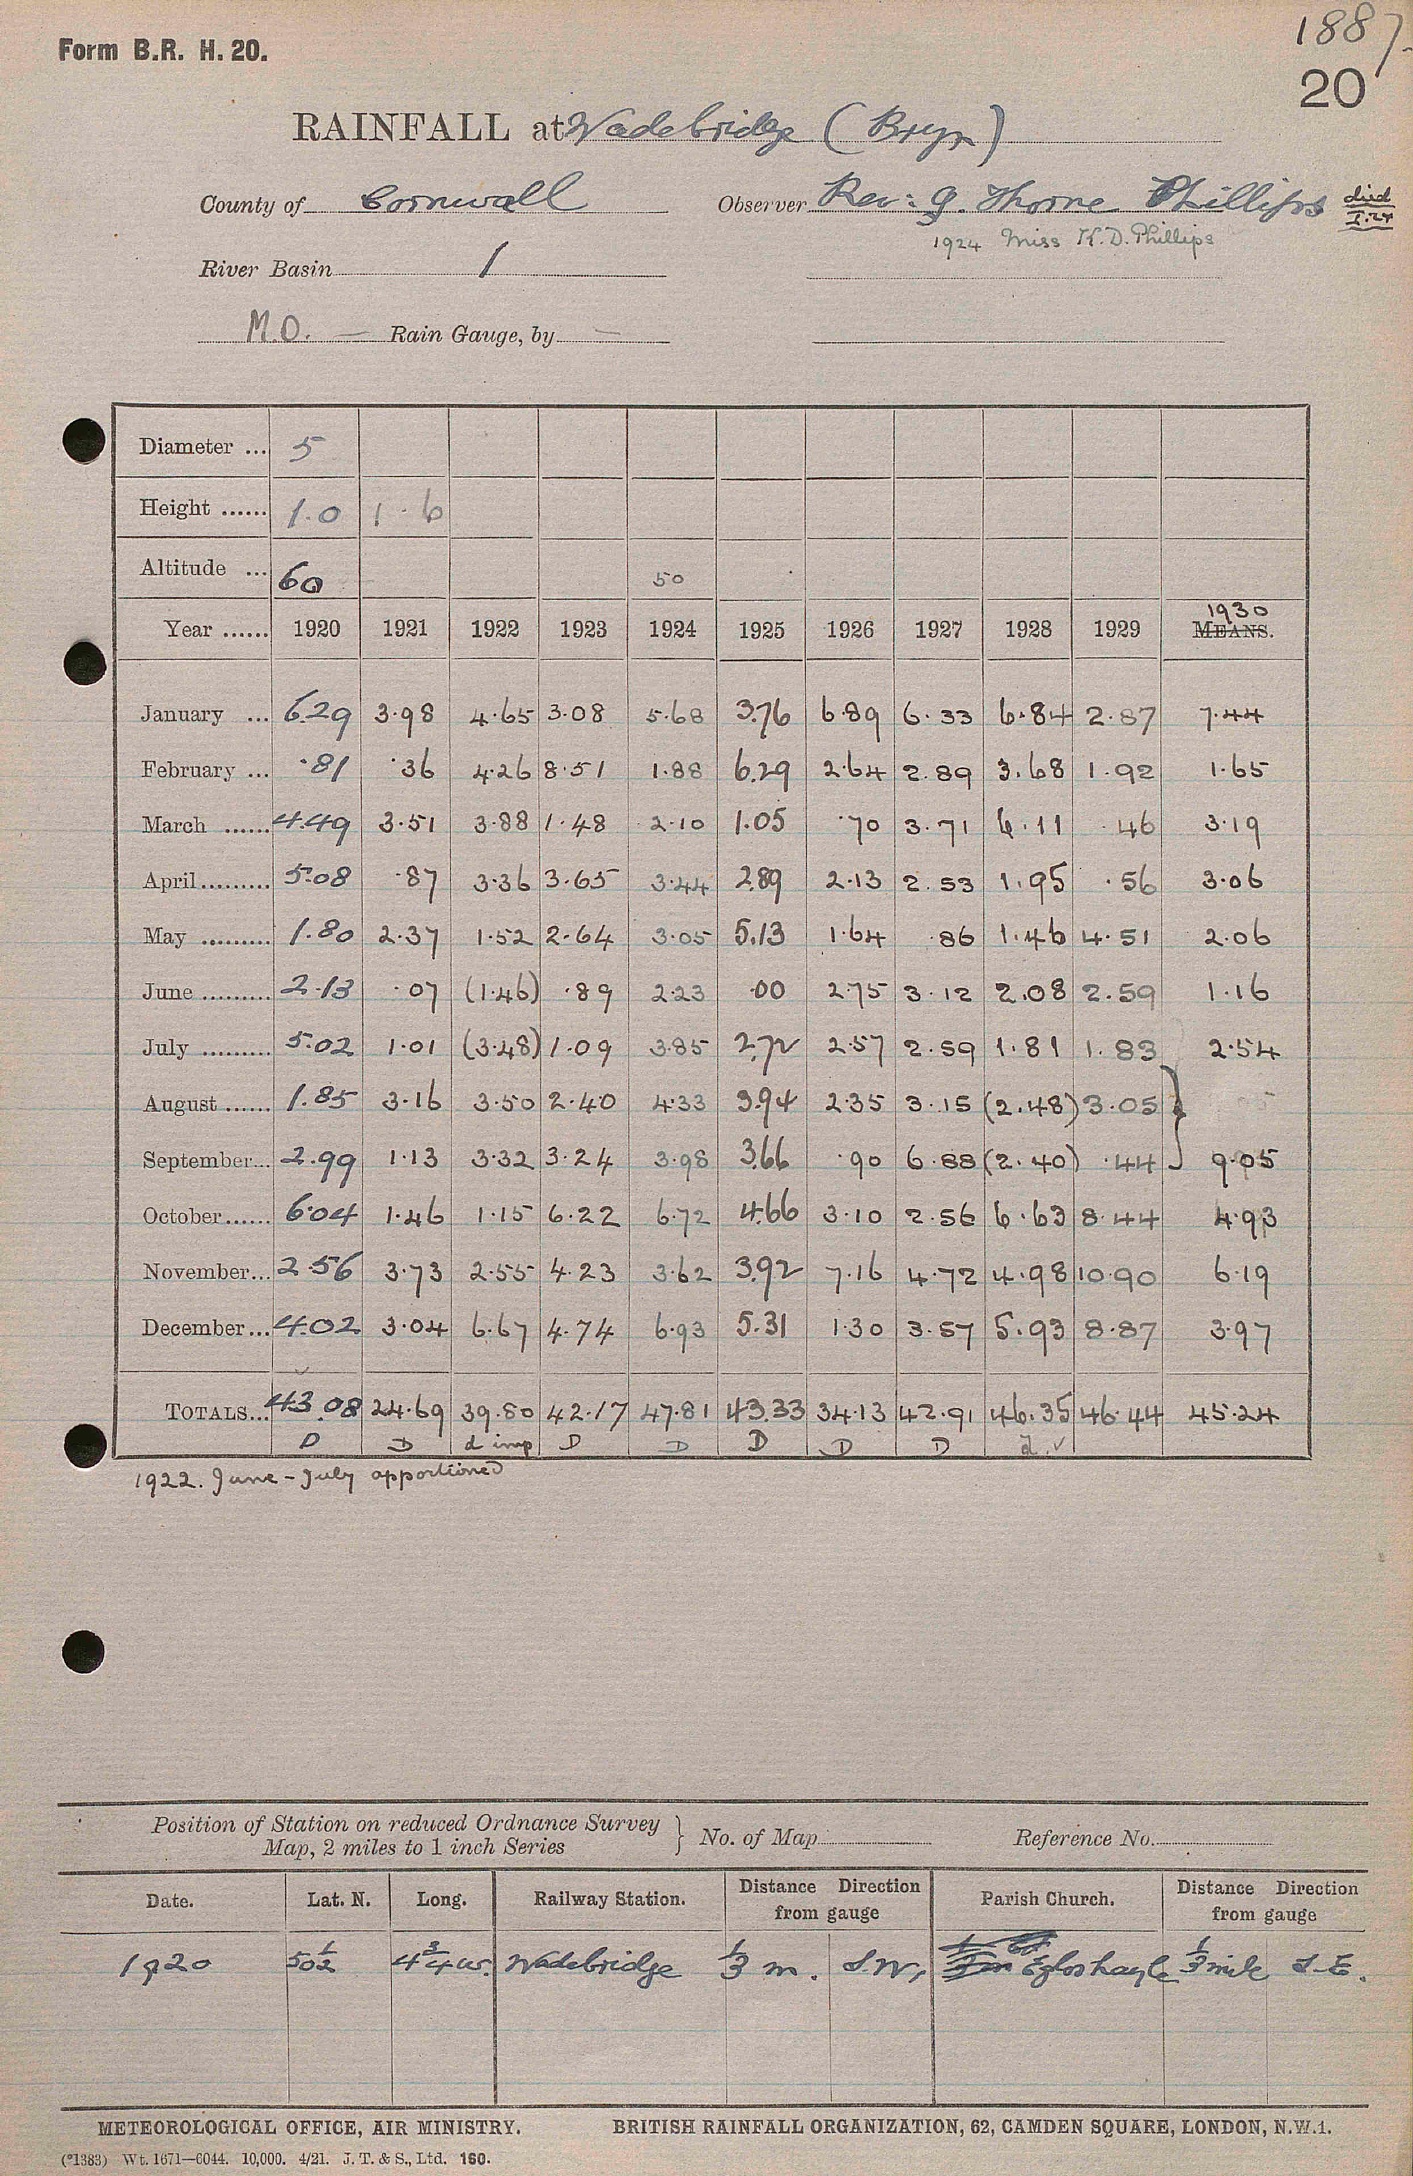 1887.
Form B.R. H. 20.
20
RAINFALL at Wadebridge (Bryn)
County of Cornwall Observer Rev: G. Thorne Phillips died I.24
1924 Miss K.D. Phillips
River Basin 1
M.O. — Rain Gauge, by —
Diameter ... 5
Height ...... 1.0 1.6
Altitude ... 60 50
1930
Year ...... 1920 1921 1922 1923 1924 1925 1926 1927 1928 1929 MEANS.
January ... 6.29 3.98 4.65 3.08 5.68 3.76 6.89 6.33 6.84 2.87 7.44
February ... .81 .36 4.26 8.51 1.88 6.29 2.64 2.89 3.68 1.92 1.65
March ...... 4.49 3.51 3.88 1.48 2.10 1.05 .70 3.71 6.11 .46 3.19
April ......... 5.08 .87 3.36 3.65 3.44 2.89 2.13 2.53 1.95 .56 3.06
May ......... 1.80 2.37 1.52 2.64 3.05 5.13 1.64 .86 1.46 4.51 2.06
June ......... 2.13 .07 (1.46) .89 2.23 .00 2.75 3.12 2.08 2.59 1.16
July ......... 5.02 1.01 (3.48) 1.09 3.85 2.72 2.57 2.59 1.81 1.83 2.54
August ...... 1.85 3.16 3.50 2.40 4.33 3.94 2.35 3.15 (2.48) 3.05 }
September... 2.99 1.13 3.32 3.24 3.98 3.66 .90 6.88 (2.40) .44 9.05
October ...... 6.04 1.46 1.15 6.22 6.72 4.66 3.10 2.56 6.63 8.44 4.93
November... 2.56 3.73 2.55 4.23 3.62 3.92 7.16 4.72 4.98 10.90 6.19
December ... 4.02 3.04 6.67 4.74 6.93 5.31 1.30 3.57 5.93 8.87 3.97
TOTALS... 43.08 24.69 39.80 42.17 47.81 43.33 34.13 42.91 46.35 46.44 45.24
D D d imp D D D D D d ✓
1922. June - July apportioned
Position of Station on reduced Ordnance Survey
Map, 2 miles to 1 inch Series } No. of Map Reference No.
Date. Lat. N. Long. Railway Station. Distance Direction from gauge Parish Church. Distance Direction from gauge
1920 50½ 4¾ W. Wadebridge ⅓ m. S.W. Egloshayle ⅓ mile S.E.
METEOROLOGICAL OFFICE, AIR MINISTRY. BRITISH RAINFALL ORGANIZATION, 62, CAMDEN SQUARE, LONDON, N.W.1.
(*1383) Wt. 1671—6044. 10,000. 4/21. J. T. & S., Ltd. 160.